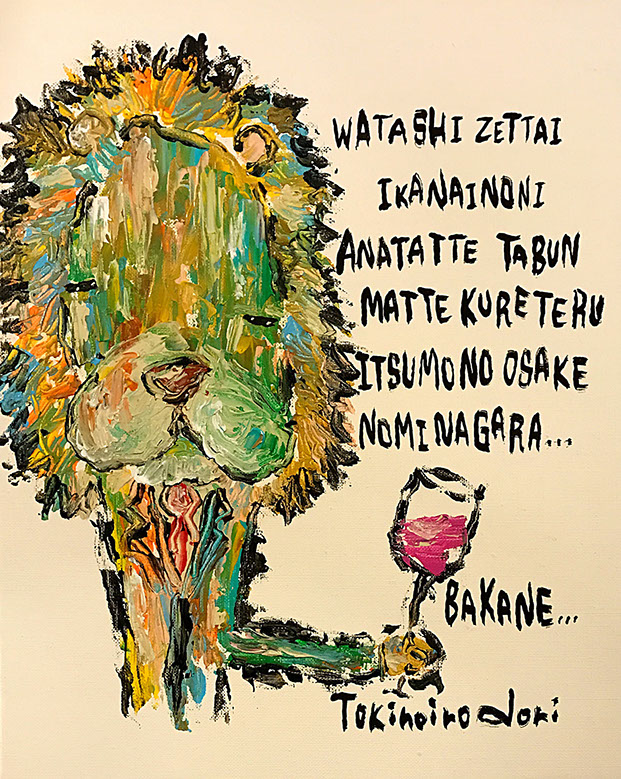 WATASHI ZETTAI
IKANAINONI
ANATATTE TABUN
MATTE KURETERU
ITSUMONO OSAKE
NOMINAGARA...
BAKANE...
Tokinoirodori